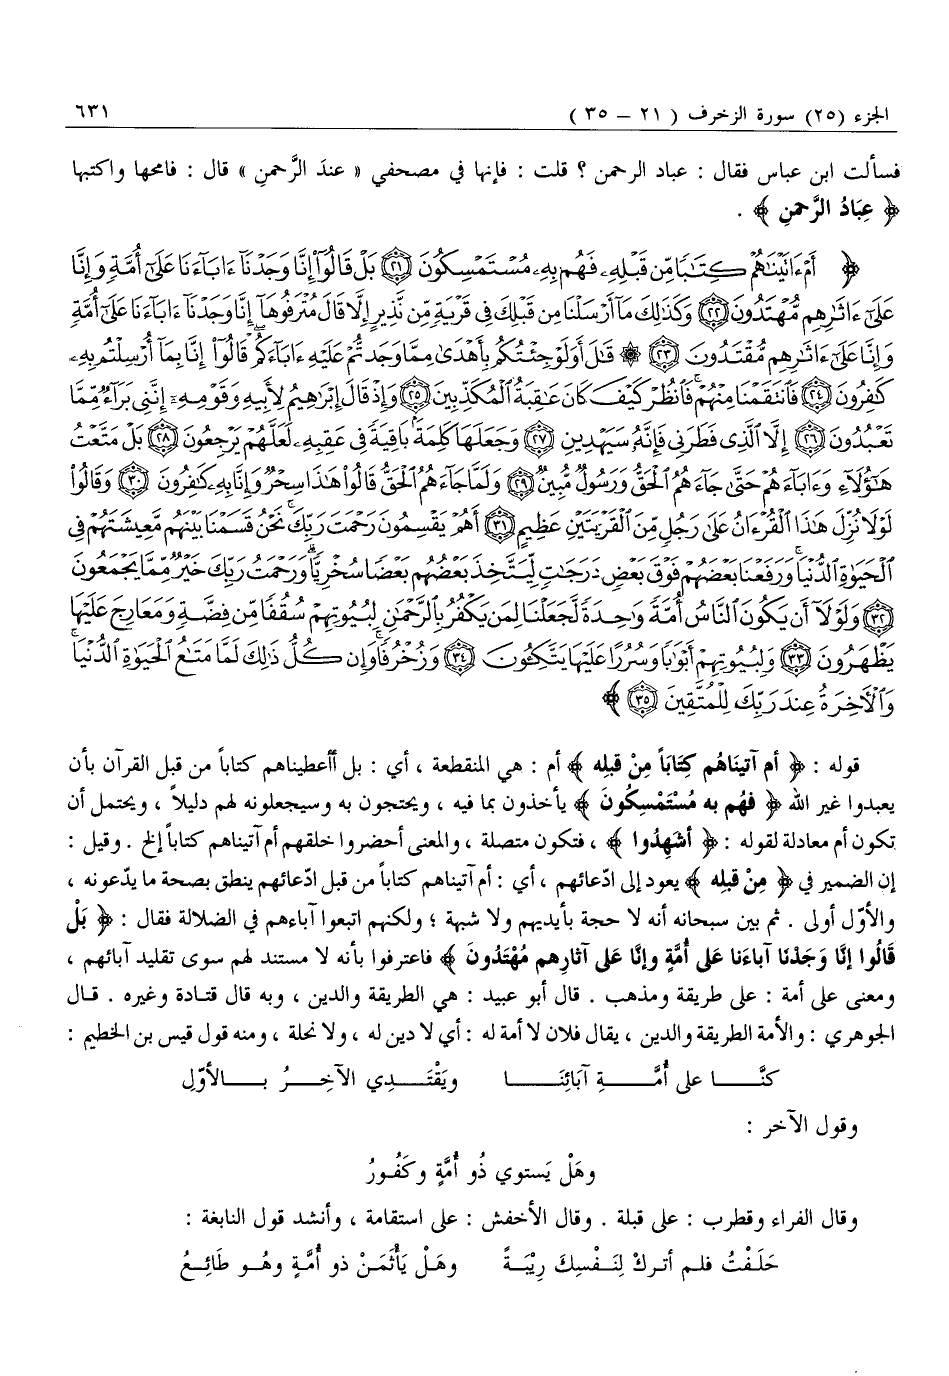 الجزء (٢٥) سورة الزخرف ( ٢١ – ٣٥ ) ٦٣١
فسألت ابن عباس فقال : عباد الرحمن ؟ قلت : فإنها في مصحفي « عندَ الرَّحمنِ » قال : فامحها واكتبها
﴿ عِبَادُ الرَّحمنِ ﴾ .
﴿ أَمْ ءَاتَيْنَٰهُمْ كِتَٰبًا مِّن قَبْلِهِۦ فَهُم بِهِۦ مُسْتَمْسِكُونَ ٢١ بَلْ قَالُوٓا۟ إِنَّا وَجَدْنَآ ءَابَآءَنَا عَلَىٰٓ أُمَّةٍ وَإِنَّا
عَلَىٰٓ ءَاثَٰرِهِم مُّهْتَدُونَ ٢٢ وَكَذَٰلِكَ مَآ أَرْسَلْنَا مِن قَبْلِكَ فِى قَرْيَةٍ مِّن نَّذِيرٍ إِلَّا قَالَ مُتْرَفُوهَآ إِنَّا وَجَدْنَآ ءَابَآءَنَا عَلَىٰٓ أُمَّةٍ
وَإِنَّا عَلَىٰٓ ءَاثَٰرِهِم مُّقْتَدُونَ ٢٣ ۞ قَٰلَ أَوَلَوْ جِئْتُكُم بِأَهْدَىٰ مِمَّا وَجَدتُّمْ عَلَيْهِ ءَابَآءَكُمْ قَالُوٓا۟ إِنَّا بِمَآ أُرْسِلْتُم بِهِۦ
كَٰفِرُونَ ٢٤ فَٱنتَقَمْنَا مِنْهُمْ ۖ فَٱنظُرْ كَيْفَ كَانَ عَٰقِبَةُ ٱلْمُكَذِّبِينَ ٢٥ وَإِذْ قَالَ إِبْرَٰهِيمُ لِأَبِيهِ وَقَوْمِهِۦٓ إِنَّنِى بَرَآءٌ مِّمَّا
تَعْبُدُونَ ٢٦ إِلَّا ٱلَّذِى فَطَرَنِى فَإِنَّهُۥ سَيَهْدِينِ ٢٧ وَجَعَلَهَا كَلِمَةًۢ بَاقِيَةً فِى عَقِبِهِۦ لَعَلَّهُمْ يَرْجِعُونَ ٢٨ بَلْ مَتَّعْتُ
هَٰٓؤُلَآءِ وَءَابَآءَهُمْ حَتَّىٰ جَآءَهُمُ ٱلْحَقُّ وَرَسُولٌ مُّبِينٌ ٢٩ وَلَمَّا جَآءَهُمُ ٱلْحَقُّ قَالُوا۟ هَٰذَا سِحْرٌ وَإِنَّا بِهِۦ كَٰفِرُونَ ٣٠ وَقَالُوا۟
لَوْلَا نُزِّلَ هَٰذَا ٱلْقُرْءَانُ عَلَىٰ رَجُلٍ مِّنَ ٱلْقَرْيَتَيْنِ عَظِيمٍ ٣١ أَهُمْ يَقْسِمُونَ رَحْمَتَ رَبِّكَ ۚ نَحْنُ قَسَمْنَا بَيْنَهُم مَّعِيشَتَهُمْ فِى
ٱلْحَيَوٰةِ ٱلدُّنْيَا ۚ وَرَفَعْنَا بَعْضَهُمْ فَوْقَ بَعْضٍ دَرَجَٰتٍ لِّيَتَّخِذَ بَعْضُهُم بَعْضًا سُخْرِيًّا ۗ وَرَحْمَتُ رَبِّكَ خَيْرٌ مِّمَّا يَجْمَعُونَ
٣٢ وَلَوْلَآ أَن يَكُونَ ٱلنَّاسُ أُمَّةً وَٰحِدَةً لَّجَعَلْنَا لِمَن يَكْفُرُ بِٱلرَّحْمَٰنِ لِبُيُوتِهِمْ سُقُفًا مِّن فِضَّةٍ وَمَعَارِجَ عَلَيْهَا
يَظْهَرُونَ ٣٣ وَلِبُيُوتِهِمْ أَبْوَٰبًا وَسُرُرًا عَلَيْهَا يَتَّكِـُٔونَ ٣٤ وَزُخْرُفًا ۚ وَإِن كُلُّ ذَٰلِكَ لَمَّا مَتَٰعُ ٱلْحَيَوٰةِ ٱلدُّنْيَا ۚ
وَٱلْءَاخِرَةُ عِندَ رَبِّكَ لِلْمُتَّقِينَ ٣٥ ﴾
قوله : ﴿ أم آتيناهُم كِتَاباً مِنْ قبلِه ﴾ أم : هي المنقطعة ، أي : بل أأعطيناهم كتاباً من قبل القرآن بأن
يعبدوا غير الله ﴿ فهُم به مُسْتَمْسِكُونَ ﴾ يأخذون بما فيه ، ويحتجون به وسيجعلونه لهم دليلاً ، ويحتمل أن
تكون أم معادلة لقوله : ﴿ أشهِدُوا ﴾ ، فتكون متصلة ، والمعنى أحضروا خلقهم أم آتيناهم كتاباً إلخ . وقيل :
إن الضمير في ﴿ مِنْ قبلِه ﴾ يعود إلى ادّعائهم ، أي : أم آتيناهم كتاباً من قبل ادّعائهم ينطق بصحة ما يدّعونه ،
والأوّل أولى . ثم بين سبحانه أنه لا حجة بأيديهم ولا شبهة ؛ ولكنهم اتبعوا آباءهم في الضلالة فقال : ﴿ بَلْ
قَالُوا إنَّا وَجَدْنَا آباءَنا على أُمَّةٍ وإنَّا على آثارِهم مُهْتَدُونَ ﴾ فاعترفوا بأنه لا مستند لهم سوى تقليد آبائهم ،
ومعنى على أمة : على طريقة ومذهب . قال أبو عبيد : هي الطريقة والدين ، وبه قال قتادة وغيره . قال
الجوهري : والأمة الطريقة والدين ، يقال فلان لا أمة له : أي لا دين له ، ولا نحلة ، ومنه قول قيس بن الخطيم :
كنَّا على أُمَّةِ آبَائِنَا ويَقْتَدِي الآخِرُ بالأوّلِ
وقول الآخر :
وهَلْ يَستوي ذُو أُمَّةٍ وكَفُورُ
وقال الفراء وقطرب : على قبلة . وقال الأخفش : على استقامة ، وأنشد قول النابغة :
حَلَفْتُ فلم أترك لِنَفْسِكَ رِيْبَةً وهَلْ يَأْثَمَنْ ذو أُمَّةٍ وهُو طَائِعُ